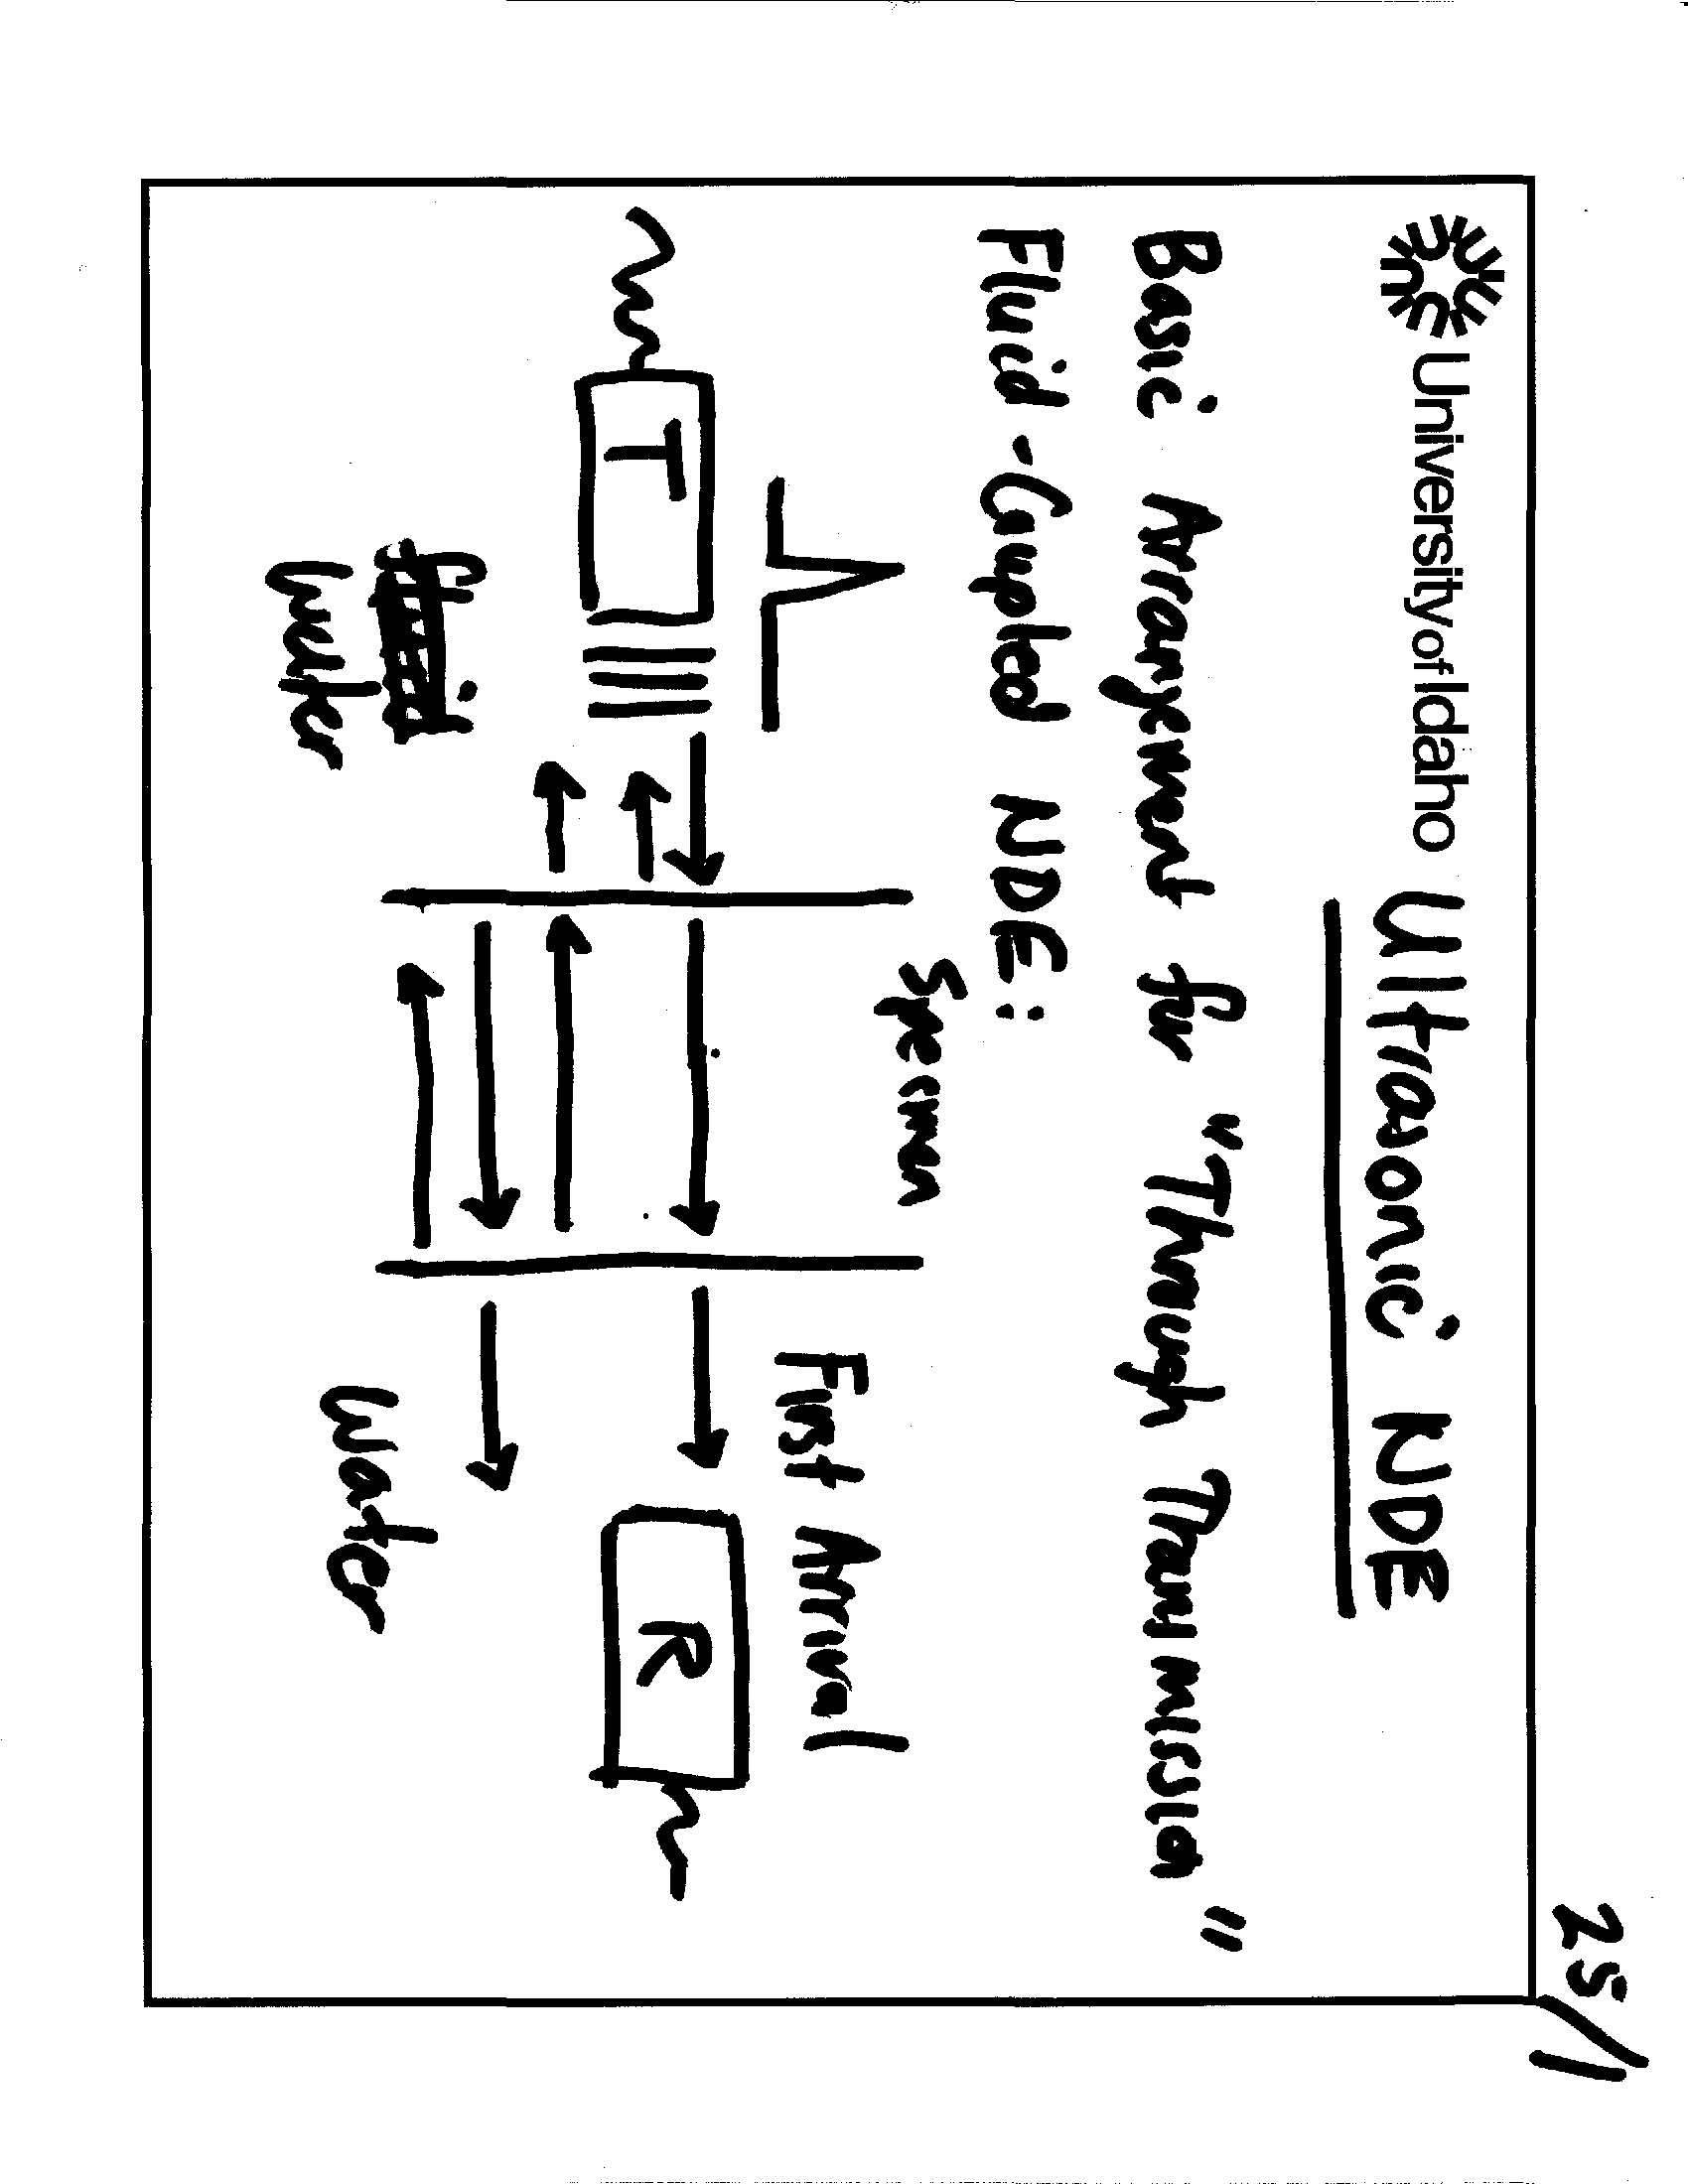 25/1
University of Idaho Ultrasonic NDE
Basic Arrangement for "Through Transmission"
Fluid-Coupled NDE:
Specimen
First Arrival
T
R
Water
Water